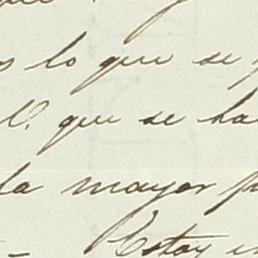 lo que se
que se ha
la mayor
Estoy